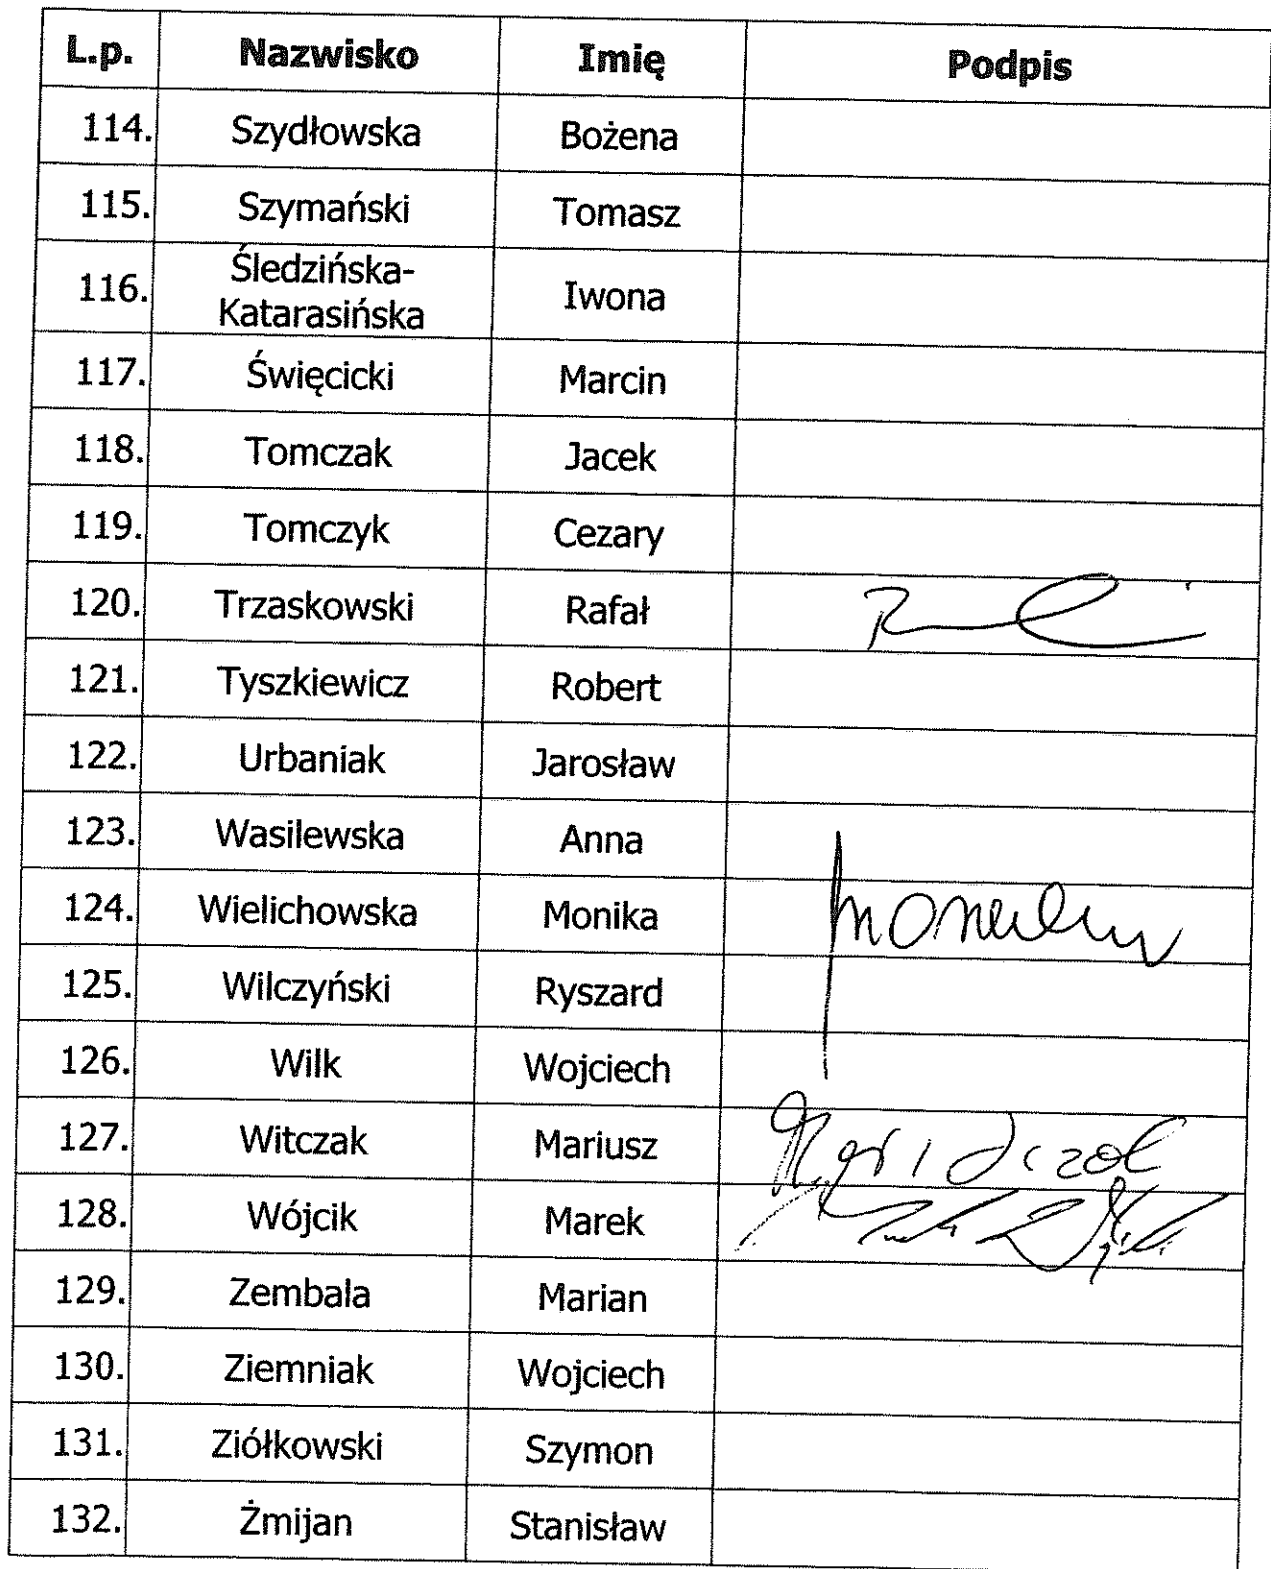 L.p. Nazwisko Imię Podpis
114. Szydłowska Bożena
115. Szymański Tomasz
116. Śledzińska-
Katarasińska Iwona
117. Święcicki Marcin
118. Tomczak Jacek
119. Tomczyk Cezary
120. Trzaskowski Rafał
121. Tyszkiewicz Robert
122. Urbaniak Jarosław
123. Wasilewska Anna
124. Wielichowska Monika
125. Wilczyński Ryszard
126. Wilk Wojciech
127. Witczak Mariusz
128. Wójcik Marek
129. Zembala Marian
130. Ziemniak Wojciech
131. Ziółkowski Szymon
132. Żmijan Stanisław